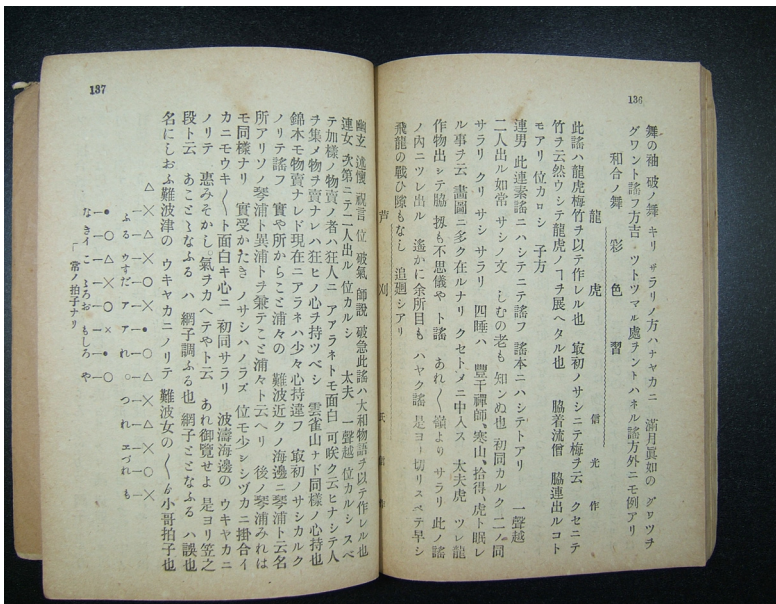 136
舞の袖 破ノ舞 キリ サラリノ方ハナヤカニ 滿月眞如の グワツチ
グワント謠フ方吉 ツトツマル處チントハネル謠方外ニモ例アリ
和合ノ舞 彩色 習
龍虎 信光作
此謠ハ龍虎梅竹ヲ以テ作レル也 最初ノサシニテ梅ヲ云 クセニテ
竹ヲ云然ウシテ龍虎ノヿヲ展ヘタル也 脇着流僧 脇連出ルコト
モアリ 位カロシ 子方
連男 此連素謠ニハシテニテ謠フ 謠本ニハシテトアリ 一聲越
二人出ル如常 サシノ文 しむの老も 知ンぬ也 初同カルク 二ノ同
サラリ クリ サシ サラリ 四睡ハ 豐干禪師、寒山、拾得、虎ト眠レ
ル事ヲ云 畵圖ニ多ク在ルナリ クセトメニ中入ス 太夫虎 ツレ龍
作物出シテ脇 扨も不思儀や ト謠 あれ〱嶺より サラリ 此ノ謠
ノ内ニツレ出ル 遙かに余所目も ハヤク謠 是ヨー切リスベテ早シ
飛龍の戰ひ隙もなし 追廻シアリ
芦刈 作
137
幽玄 述懷 祝言 位 破氣 師説 破急此謠ハ大和物語ヲ以テ作レル也
連女 次第ニテ二人出ル 位カルシ 太夫 一聲越 位カルシ スベ
テ加樣ノ物賣ノ者ハ狂人ニ アアラネトモ面白 可咲ク云ヒナシテ人
ヲ集メ物ヲ賣ナレハ狂ヒノ心ヲ持ツベシ 雲雀山ナド同樣ノ心持也
錦木モ物賣ナレド現在ニアラネハ少々心持違フ 最初ノサシカルク
ノリテ謠フ 實や所からこと浦々の 難波近クノ海邊ニ琴浦ト云名
所アリソノ琴浦ト異浦トヲ兼テこと浦々ト云ヘリ 後ノ琴浦みれは
モ同樣ナリ 實受かたき ノサシハノラズ 位モ少シシヅカニ掛合イ
カニモウキ〱ト面白キ心ニ 初同サラリ 波濤海邊の ウキヤカニ
ノリテ 惠みそかし氣ヲカヘテやト云 あれ御覽せよ 是ヨリ笠之
段ト云 あことゝなふるハ 網子調ふる也 網子ととなふる ハ誤也
名にしおふ難波津の ウキヤカニノリテ 難波女の〱小哥拍子也
△×△×○×●○△×△×○×
ふる ウすだ アア れ ○ つれ ヱづれ も
●○△×○×●○
なきイこ ゝろお もしろ や
「常ノ拍子ナリ